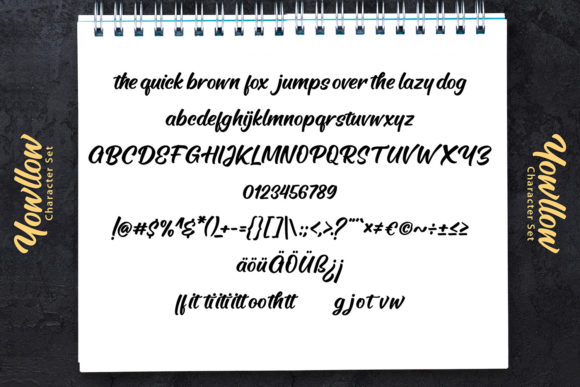 Yowllow
Character Set
the quick brown fox jumps over the lazy dog
abcdefghijklmnopqrstuvwxyz
ABCDEFGHIJKLMNOPQRSTUVWXYZ
0123456789
!@#$%^&*()_+-={}[]|\:;<,>.?¨˙`×≠€©~÷±≤≥
äöüÄÖÜß¿¡
ff it ti iti itt oo th tt g j o t v w
Yowllow
Character Set